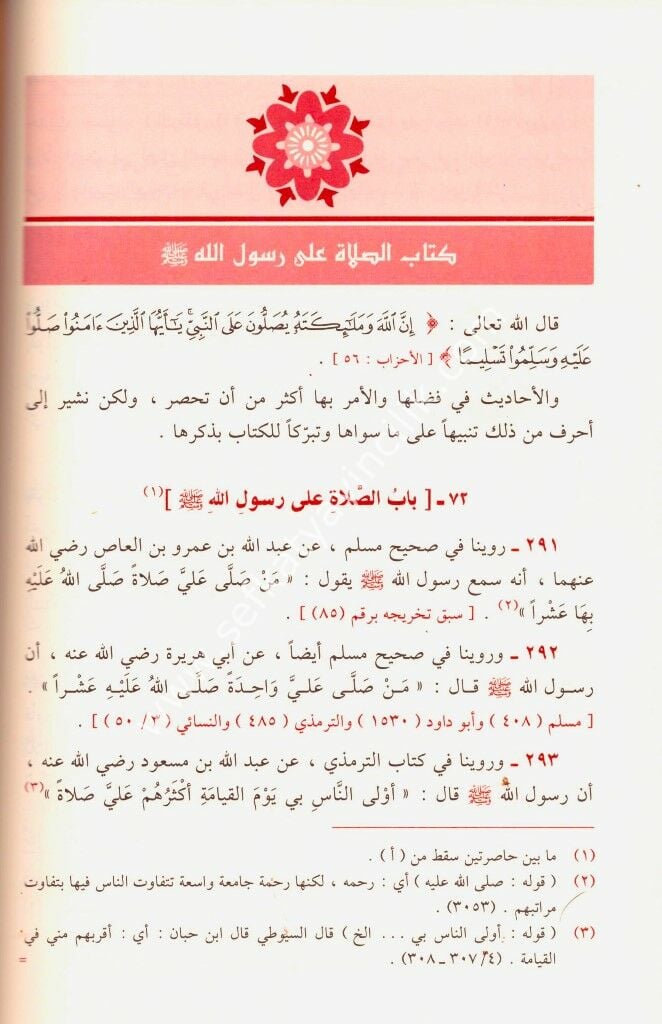 كتاب الصلاة على رسول الله ﷺ
قال الله تعالى : ﴿ إِنَّ ٱللَّهَ وَمَلَٰٓئِكَتَهُۥ يُصَلُّونَ عَلَى ٱلنَّبِيِّۚ يَٰٓأَيُّهَا ٱلَّذِينَ ءَامَنُوا۟ صَلُّوا۟
عَلَيْهِ وَسَلِّمُوا۟ تَسْلِيمًا ﴾ [ الأحزاب : ٥٦ ] .
والأحاديث في فضلها والأمر بها أكثر من أن تحصر ، ولكن نشير إلى
أحرف من ذلك تنبيهاً على ما سواها وتبرّكاً للكتاب بذكرها .
٧٢ ـ [ بابُ الصَّلاةِ على رسولِ اللهِ ﷺ ](١)
٢٩١ ـ روينا في صحيح مسلم ، عن عبد الله بن عمرو بن العاص رضي الله
عنهما ، أنه سمع رسول الله ﷺ يقول : « مَنْ صَلَّى عَليَّ صَلاةً صَلَّى اللهُ عَلَيْهِ
بِهَا عَشْراً »(٢) . [ سبق تخريجه برقم (٨٥) ] .
٢٩٢ ـ وروينا في صحيح مسلم أيضاً ، عن أبي هريرة رضي الله عنه ، أن
رسول الله ﷺ قال : « مَـنْ صَلَّـى عَلـيَّ وَاحِـدَةً صَلَّـى اللهُ عَلَيْـهِ عَشْـراً » .
[ مسلم ( ٤٠٨ ) وأبو داود ( ١٥٣٠ ) والترمذي ( ٤٨٥ ) والنسائي ( ٣ / ٥٠ ) ] .
٢٩٣ ـ وروينا في كتاب الترمذي ، عن عبد الله بن مسعود رضي الله عنه ،
أن رسول الله ﷺ قال : « أوْلى النَّاسِ بي يَوْمَ القيامَةِ أكْثَرُهُمْ عَليَّ صَلاةً »(٣)
(١) ما بين حاصرتين سقط من ( أ ) .
(٢) ( قوله : صلى الله عليه ) أي : رحمه ، لكنها رحمة جامعة واسعة تتفاوت الناس فيها بتفاوت
مراتبهم . (٣٠٥٣) .
(٣) ( قوله : أولى الناس بي ... الخ ) قال السيوطي قال ابن حبان : أي : أقربهم مني في
القيامة . (٣٠٧/٤ ـ ٣٠٨) .
=